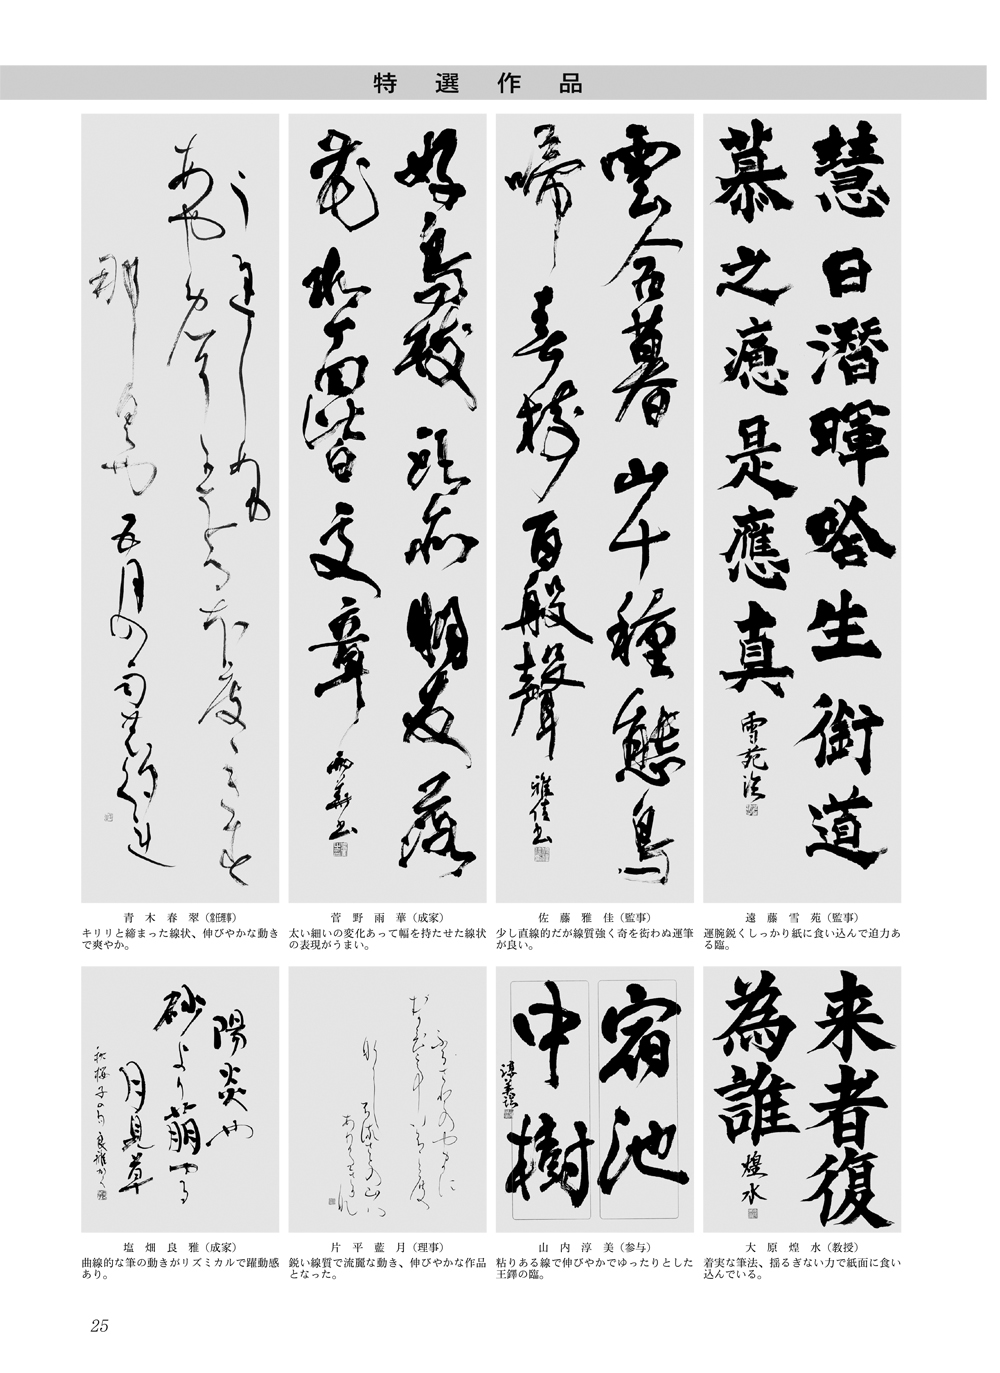 特選作品
慧日潛暉啥生銜道
慕之
是應真
雪苑臨
雲含暮山千種態鳥
啼春樹百般聲
雅佳書
好鳥枝頭亦朋友落
花水面皆文章
雨華書
遠藤雪苑（監事）
運腕鋭くしっかり紙に食い込んで迫力あ
る臨。
佐藤雅佳（監事）
少し直線的だが線質強く奇を衒わぬ運筆
が良い。
菅野雨華（成家）
太い細いの変化あって幅を持たせた線状
の表現がうまい。
青木春翠（常任理事）
キリリと締まった線状、伸びやかな動き
で爽やか。
来者復
為誰
煌水
宿池
中樹
淳美臨
陽炎や
砂より萠ゆる
月見草
秋桜子の句 良雅かく
大原煌水（教授）
着実な筆法、揺るぎない力で紙面に食い
込んでいる。
山内淳美（参与）
粘りある線で伸びやかでゆったりとした
王鐸の臨。
片平藍月（理事）
鋭い線質で流麗な動き、伸びやかな作品
となった。
塩畑良雅（成家）
曲線的な筆の動きがリズミカルで躍動感
あり。
25